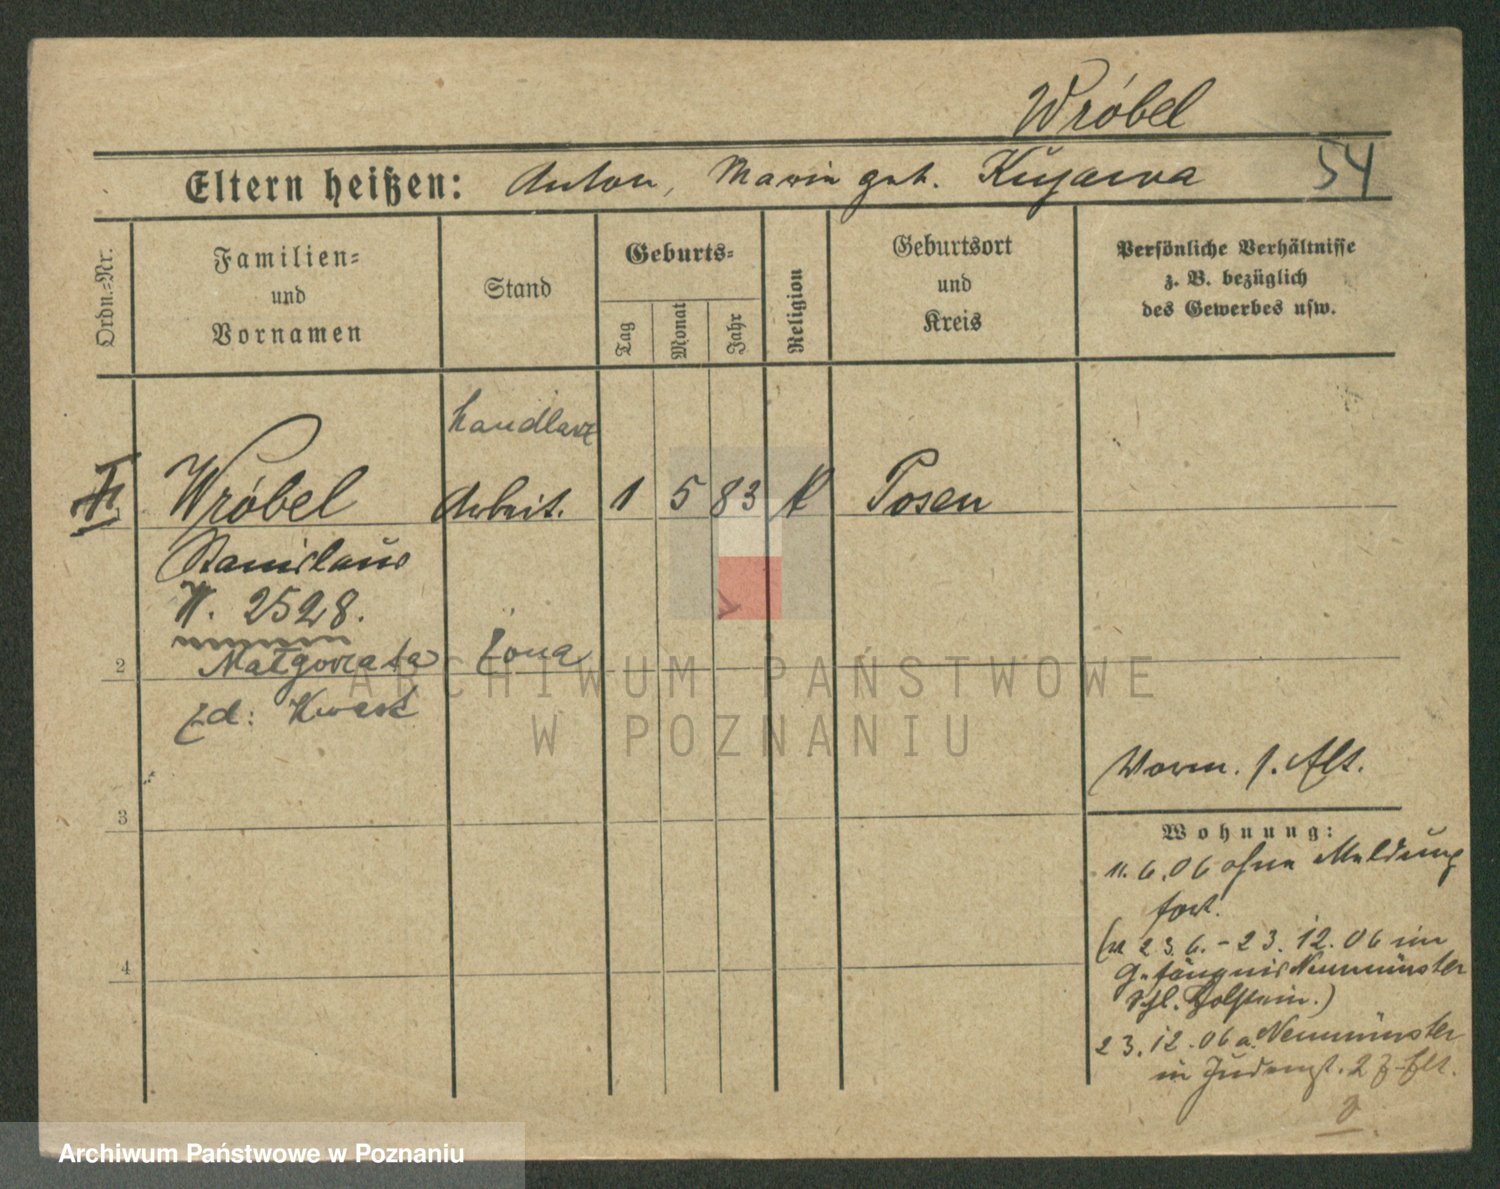 Wróbel
Eltern heißen: Anton, Maria geb. Kujawa 54
Ordn.=Nr.
Familien=
und
Vornamen
Stand
Geburts=
Tag
Monat
Jahr
Religion
Geburtsort
und
Kreis
Persönliche Verhältnisse
z. B. bezüglich
des Gewerbes usw.
handlarz
Wróbel Arbeit. 1 5 83 k Posen
Stanislaus
W. 2528.
2 Małgorzata żona
zd:
3
4
Vorm. s. Akt.
Wohnung:
11.6.06 ohne Meldung
fort.
23.6.-23.12.06 im
Gefängnis Neumünster
Schl. Holstein.)
23.12.06 a. Neumünster
in Judenstr. 2 z. Elt.
ARCHIWUM PAŃSTWOWE
W POZNANIU
Archiwum Państwowe w Poznaniu